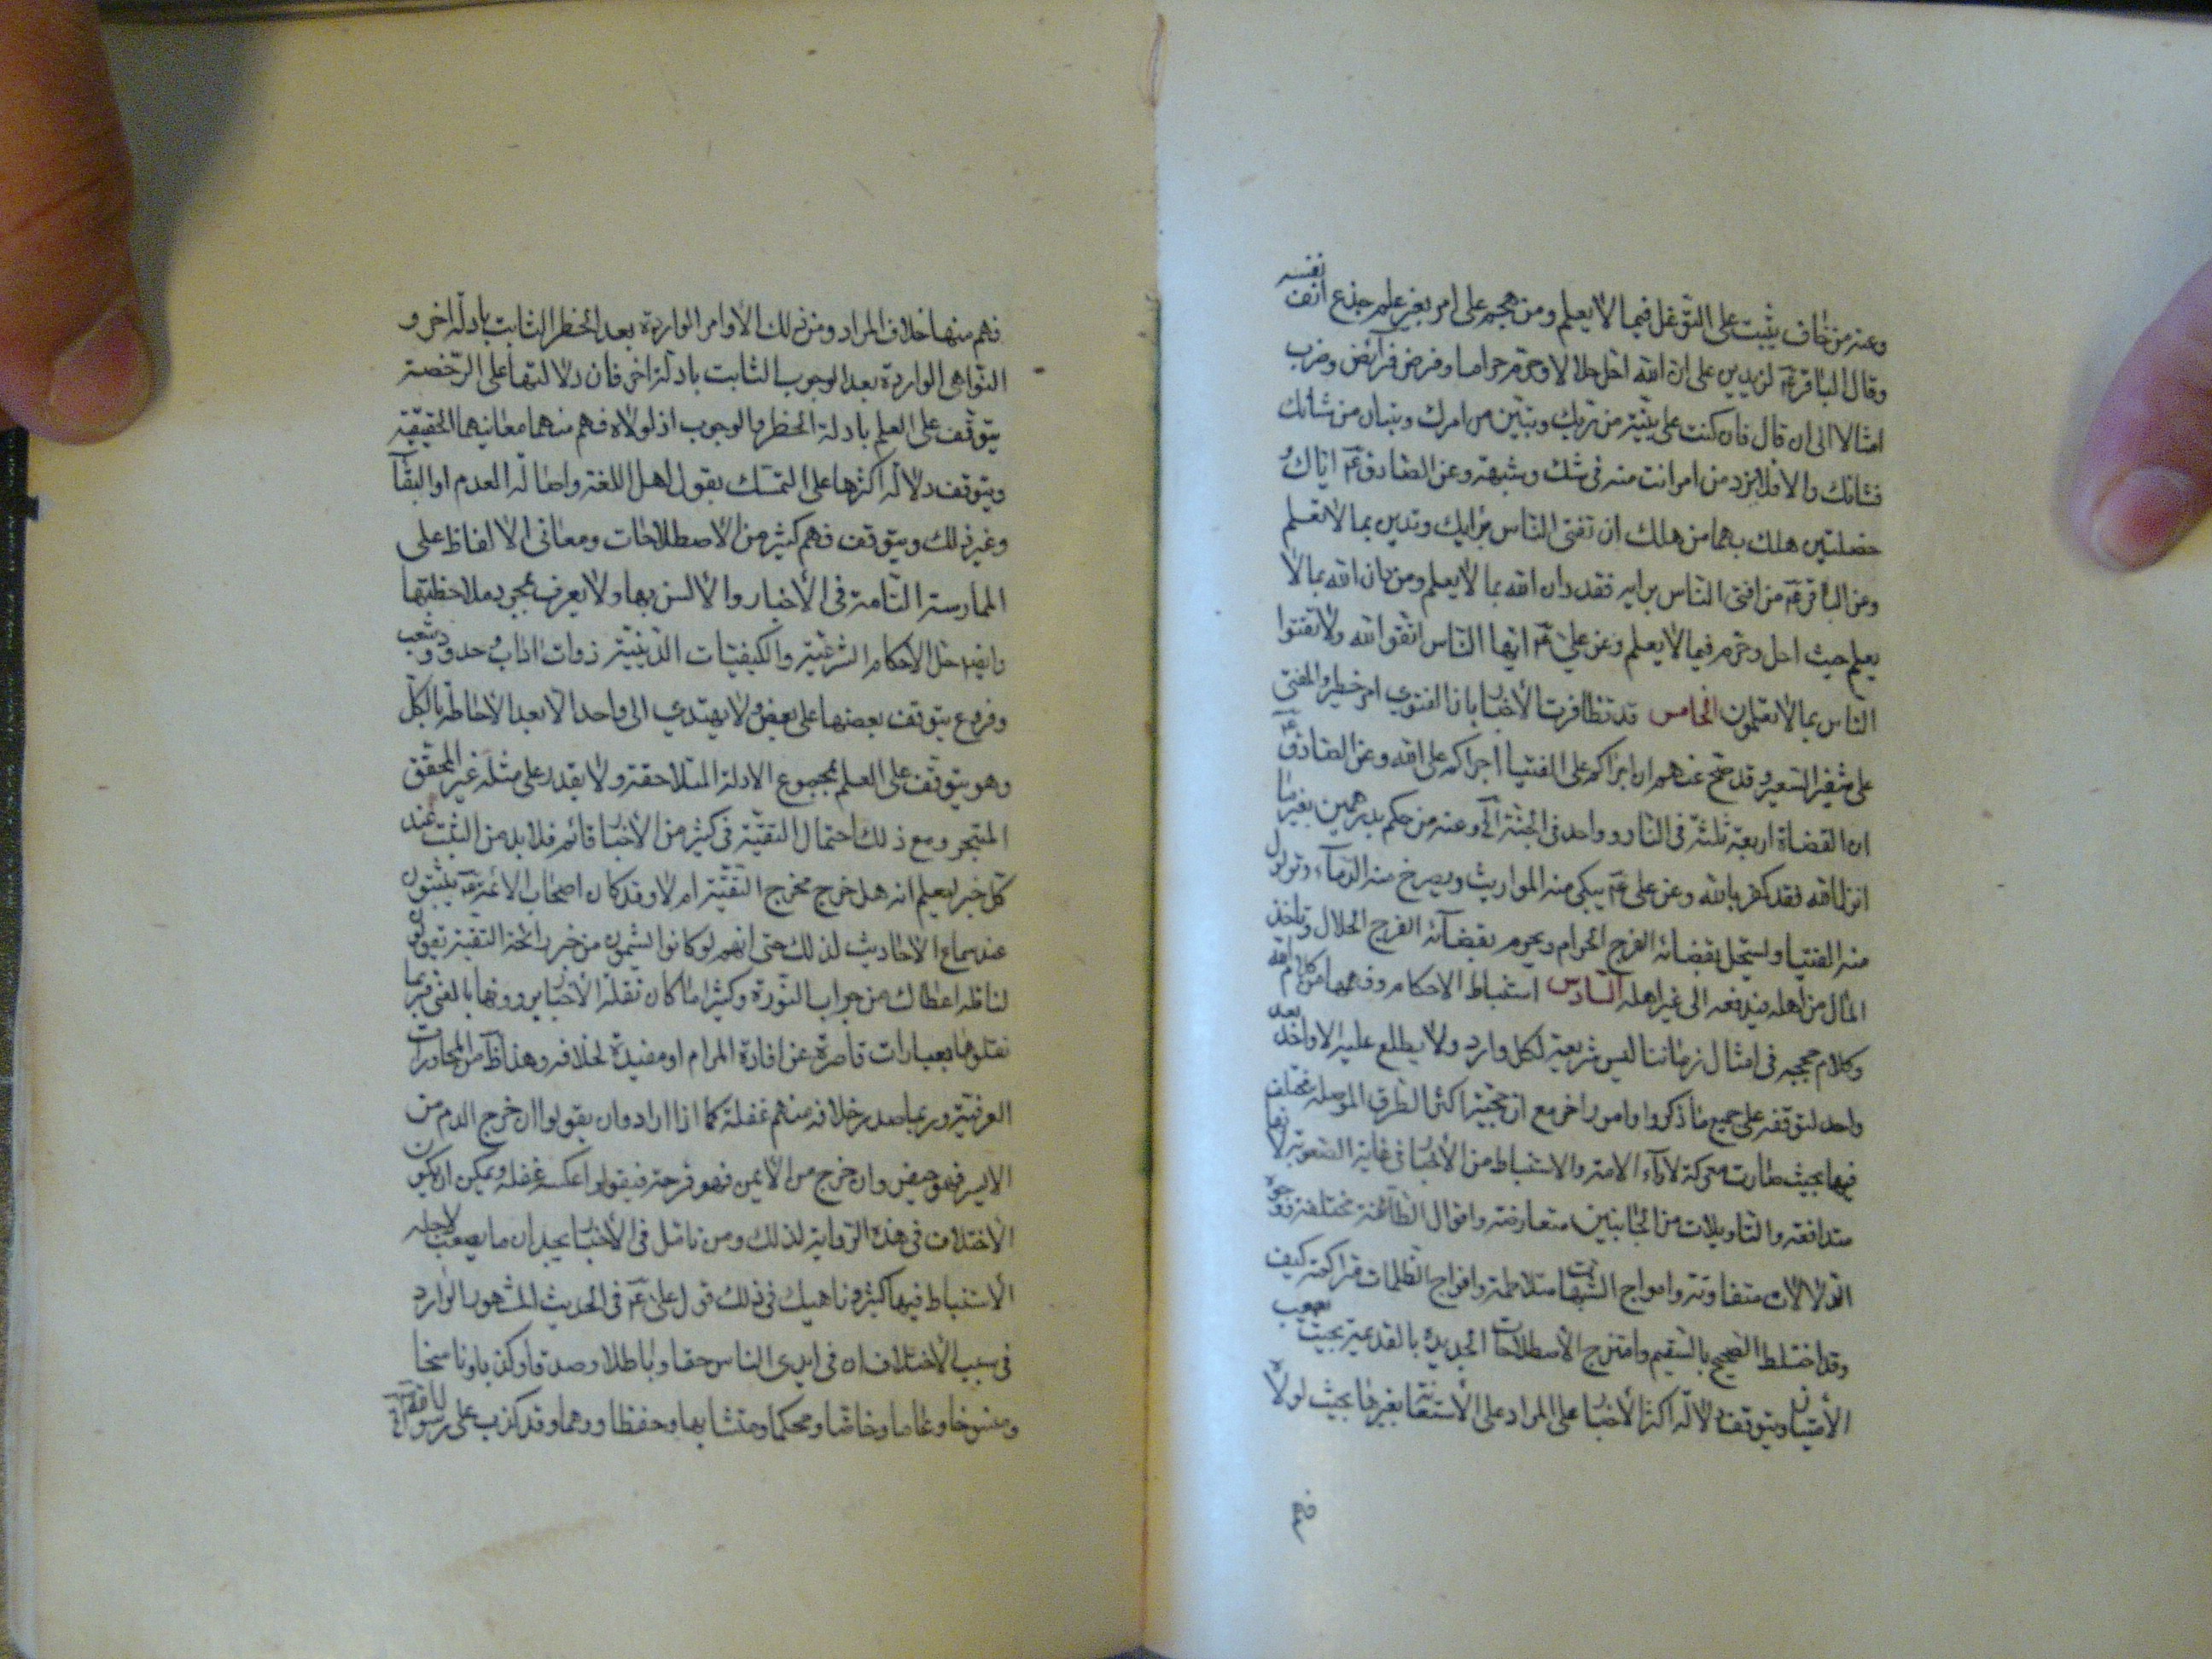 وعنه من خاف يثبت على التوغل فيما لا يعلم ومن هجم على امر بغير علم جذع انف نفسه
وقال الباقر ع لزيد بن على ان الله احل حلالا وحرم حراما وفرض فرائض وضرب
امثالا الى ان قال فان كنت على بيّنة من ربك ويقين من امرك وتبيان من شانك
فشانك والا فلا ترد من امرا انت منه فى شك وشبهة وعن الصادق ع اياك و
خصلتين هلك بهما من هلك ان تفتى الناس برايك وتدين بما لا تعلم
وعن الباقر ع من افتى الناس برايه فقد دان الله بما لا يعلم ومن دان الله بما لا
يعلم حيث احل وحرم فيما لا يعلم وعن على ع ايها الناس اتقوا الله ولا تفتوا
الناس بما لا تعلمون الخامس قد تظافرت الاخبار بانا الفتوى امر خطير والمفتى
على شفير السعير وقد صح عنهم ان اجراكم على الفتيا اجراكم على الله وعن الصادق ع
ان القضاة اربعة ثلثة فى النار وواحد فى الجنة الخ وعنه من حكم بدرهمين بغير ما
انزل الله فقد كفر بالله وعن على ع يبكى منه المواريث ويصرخ منه الدماء وتولول
منه الفتيا ويستحل بقضائه الفرج الحرام ويحرم بقضائه الفرج الحلال وتاخذ
المال من اهله فيدفعه الى غير اهله السادس استنباط الاحكام وفهمها من كلام الله
وكلام حججه فى امثال زماننا ليس شريعة لكل وارد ولا يطلع عليه الا واحد بعد
واحد لتوقفه على جميع ما ذكروا وامور اخر مع ان حجية اكثر الطرق الموصلة مختلف
فيها بحيث صارت معركة لآراء الامة والاستنباط من الاخبار فى غاية الصعوبة لانها
متدافعة والتاويلات من الجانبين متعارضة واقوال الطائفة مختلفة ووجوه
الدلالات متفاوتة وامواج الشبهات متلاطمة وافواج الظلمات متراكمة كيف
وقد اختلط الصحيح بالسقيم وامتزج الاصطلاحات الجديدة بالقديمة بحيث يصعب
الامتياز ويتوقف دلالة اكثر الاخبار على المراد على الاستعانة بغيرها بحيث لولاه
فهم
فهم منها خلاف المراد ومن ذلك الاوامر الواردة بعد الخطر الثابت بادلة اخر و
النواهى الواردة بعد الوجوب الثابت بادلة اخر فان دلالتها على الرخصة
يتوقف على العلم بادلة الخطر والوجوب اذ لولاه فهم منهما معانيهما الحقيقية
ويتوقف دلالة اكثرها على التمسك بقول اهل اللغة واصالة العدم او البقاء
وغير ذلك ويتوقف فهم كثير من الاصطلاحات ومعانى الالفاظ على
الممارسة التامة فى الاخبار والانس بها ولا يعرف بمجرد ملاحظتها
وايضا جل الاحكام الشرعية والكيفيات الدينية ذوات اداب وحدود وشعب
وفروع يتوقف بعضها على بعض ولا يهتدى الى واحد الا بعد الاحاطة بالكل
وهو يتوقف على العلم بمجموع الادلة المتلاحقة ولا يقدر على مثله غير المحقق
المتبحر ومع ذلك احتمال التقية فى كثير من الاخبار قائم فلا بد من التثبت عند
كل خبر ليعلم انه هل خرج مخرج التقية ام لا وقد كان اصحاب الائمة ع يتثبتون
عند سماع الاحاديث لذلك حتى انهم لو كانوا يشمون من خبر رائحة التقية تقولوا
لناقله اعطاك من جراب النورة وكثيرا ما كان نقلة الاخبار يروونها بالمعنى فربما
نقلوها بعبارات قاصرة عن افادة المرام او مفيدة لخلافه وهذا ظ من المحاورات
العرفية وربما صدر خلافه منهم غفلة كما اذا ارادوا ان يقولوا ان خرج الدم من
الايسر فهو حيض وان خرج من الايمن فهو قرحة فيقولوا عكسه غفلة ويمكن ان يكون
الاختلاف فى هذه الرواية لذلك ومن تامل فى الاخبار يجد ان ما يصعب لاجله
الاستنباط فيها كثيرة ناهيك فى ذلك قول على ع فى الحديث المشهور الوارد
فى سبب الاختلاف ان فى ايدى الناس حقا وباطلا وصدقا وكذبا وناسخا
ومنسوخا وعاما وخاصا ومحكما ومتشابها وحفظا ووهما وقد كذب على رسول الله